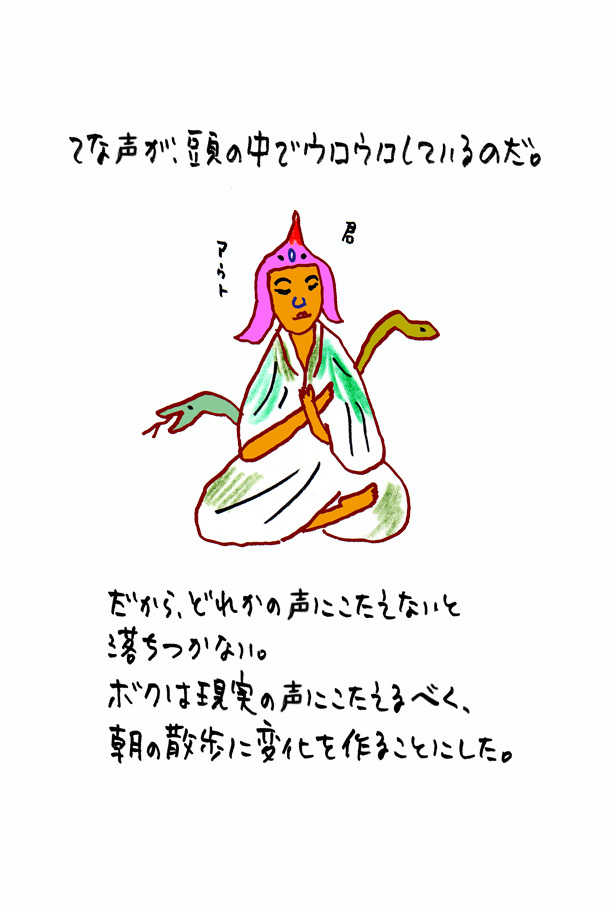 てな声が、頭の中でウロウロしているのだ。
君
アウト
だから、どれかの声にこたえないと
落ちつかない。
ボクは現実の声にこたえるべく、
朝の散歩に変化を作ることにした。